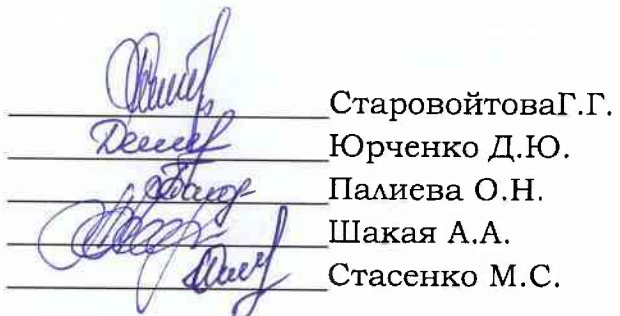 СтаровойтоваГ.Г.
Юрченко Д.Ю.
Палиева О.Н.
Шакая А.А.
Стасенко М.С.